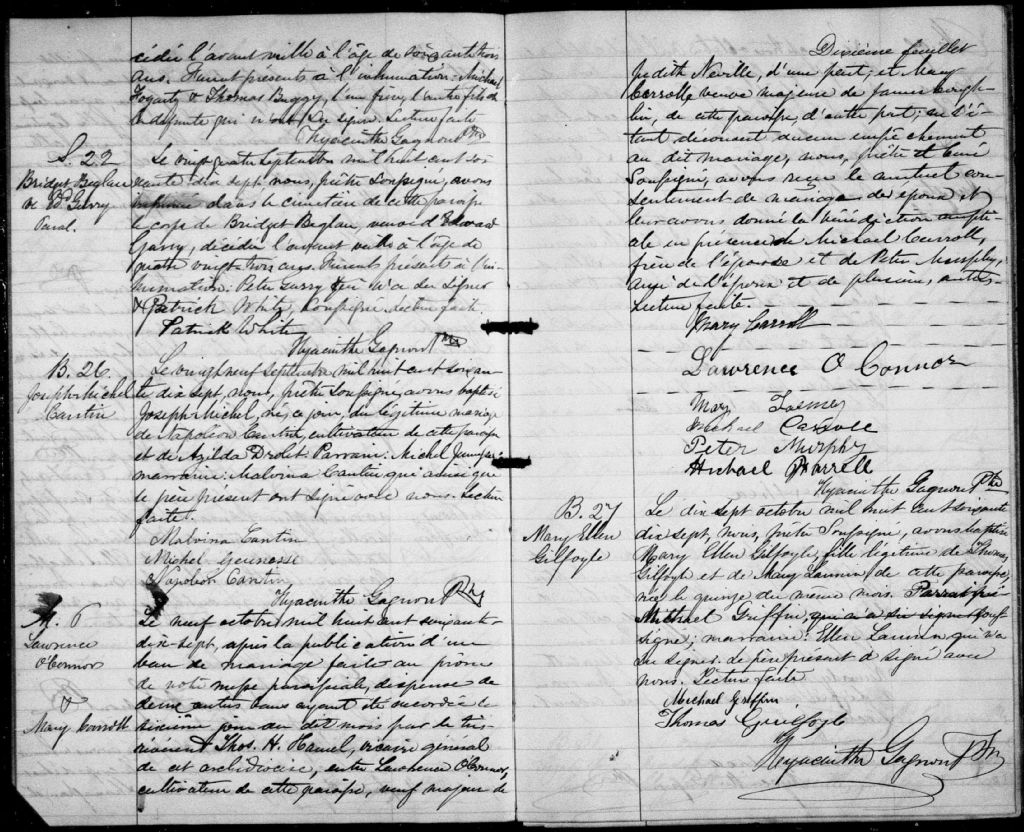 cédée l'avant veille à l'âge de soixante trois
ans. Furent présents à l'inhumation: Michael
Fogarty & Thomas Buggy, l'un frère, l'autre fils de
la défunte qui n'ont su signer. Lecture faite
Hyacinthe Gagnon Ptre
S. 22
Bridget Beglan
ve Ed Garry
Paral.
Le vingt quatre Septembre mil huit cent soi
xante dix sept, nous, prêtre soussigné, avons
inhumé dans le cimetière de cette paroisse
le corps de Bridget Beglan, veuve d'Edward
Garry, décédée l'avant veille à l'âge de
quatre vingt trois ans. Furent présents à l'in
humation: Peter Garry qui n'a su signer
& Patrick White, soussigné. Lecture faite.
Patrick White
Hyacinthe Gagnon Ptre
B. 26
Joseph Michel
Cantin
Le vingt neuf septembre mil huit cent soixan
te dix sept, nous, prêtre soussigné, avons baptisé
Joseph Michel, né ce jour, du légitime mariage
de Napoléon Cantin, cultivateur de cette paroisse
et de Azilda Drolet. Parrain: Michel Jeunesse
marraine: Malvina Cantin qui ainsi que
le père présent ont signé avec nous. Lecture
faite.
Malvina Cantin
Michel Jeunesse
Napoléon Cantin
Hyacinthe Gagnon Ptre
M. 6
Lawrence
O'Connor
&
Mary Carroll
Le neuf octobre, mil huit cent soixante
dix-sept, après la publication d'un
ban de mariage faite au prône
de notre messe paroissiale, dispense de
deux autres bans ayant été accordée le
sixième jour du dit mois par le très
révérend Thos. H. Hamel, vicaire général
de cet archidiocèse, entre Lawrence O'Connor,
cultivateur de cette paroisse, veuf majeur de
Dixième feuillet
Judith Neville, d'une part; et Mary
Carroll veuve majeure de James Cough
lin, de cette paroisse, d'autre part; ne s'é
tant découvert aucun empêchement
au dit mariage, nous, prêtre et curé
soussigné, avons reçu le mutuel con
sentement de mariage des époux et
leur avons donné la bénédiction nupti
ale en présence de Michael Carroll,
frère de l'épouse et de Peter Murphy,
ami de l'époux et de plusieurs autres.
Lecture faite.
Mary Carroll
Lawrence O Connor
Mary
Michael Carroll
Peter Murphy
Michael Farrell
Hyacinthe Gagnon Ptre
B. 27
Mary Ellen
Gilfoyle
Le dix sept octobre mil huit cent soixante
dix sept, nous, prêtre soussigné, avons baptisé
Mary Ellen Gilfoyle, fille légitime de Thomas
Gilfoyle et de Mary Lannin, de cette paroisse,
née le quinze du même mois. Parrain
Michael Griffin, qui n'a su signer sous
signé; marraine: Ellen Lannin qui n'a
su signer. Le père présent a signé avec
nous. Lecture faite
Michael Griffin
Thomas Guilfoyle
Hyacinthe Gagnon Ptre